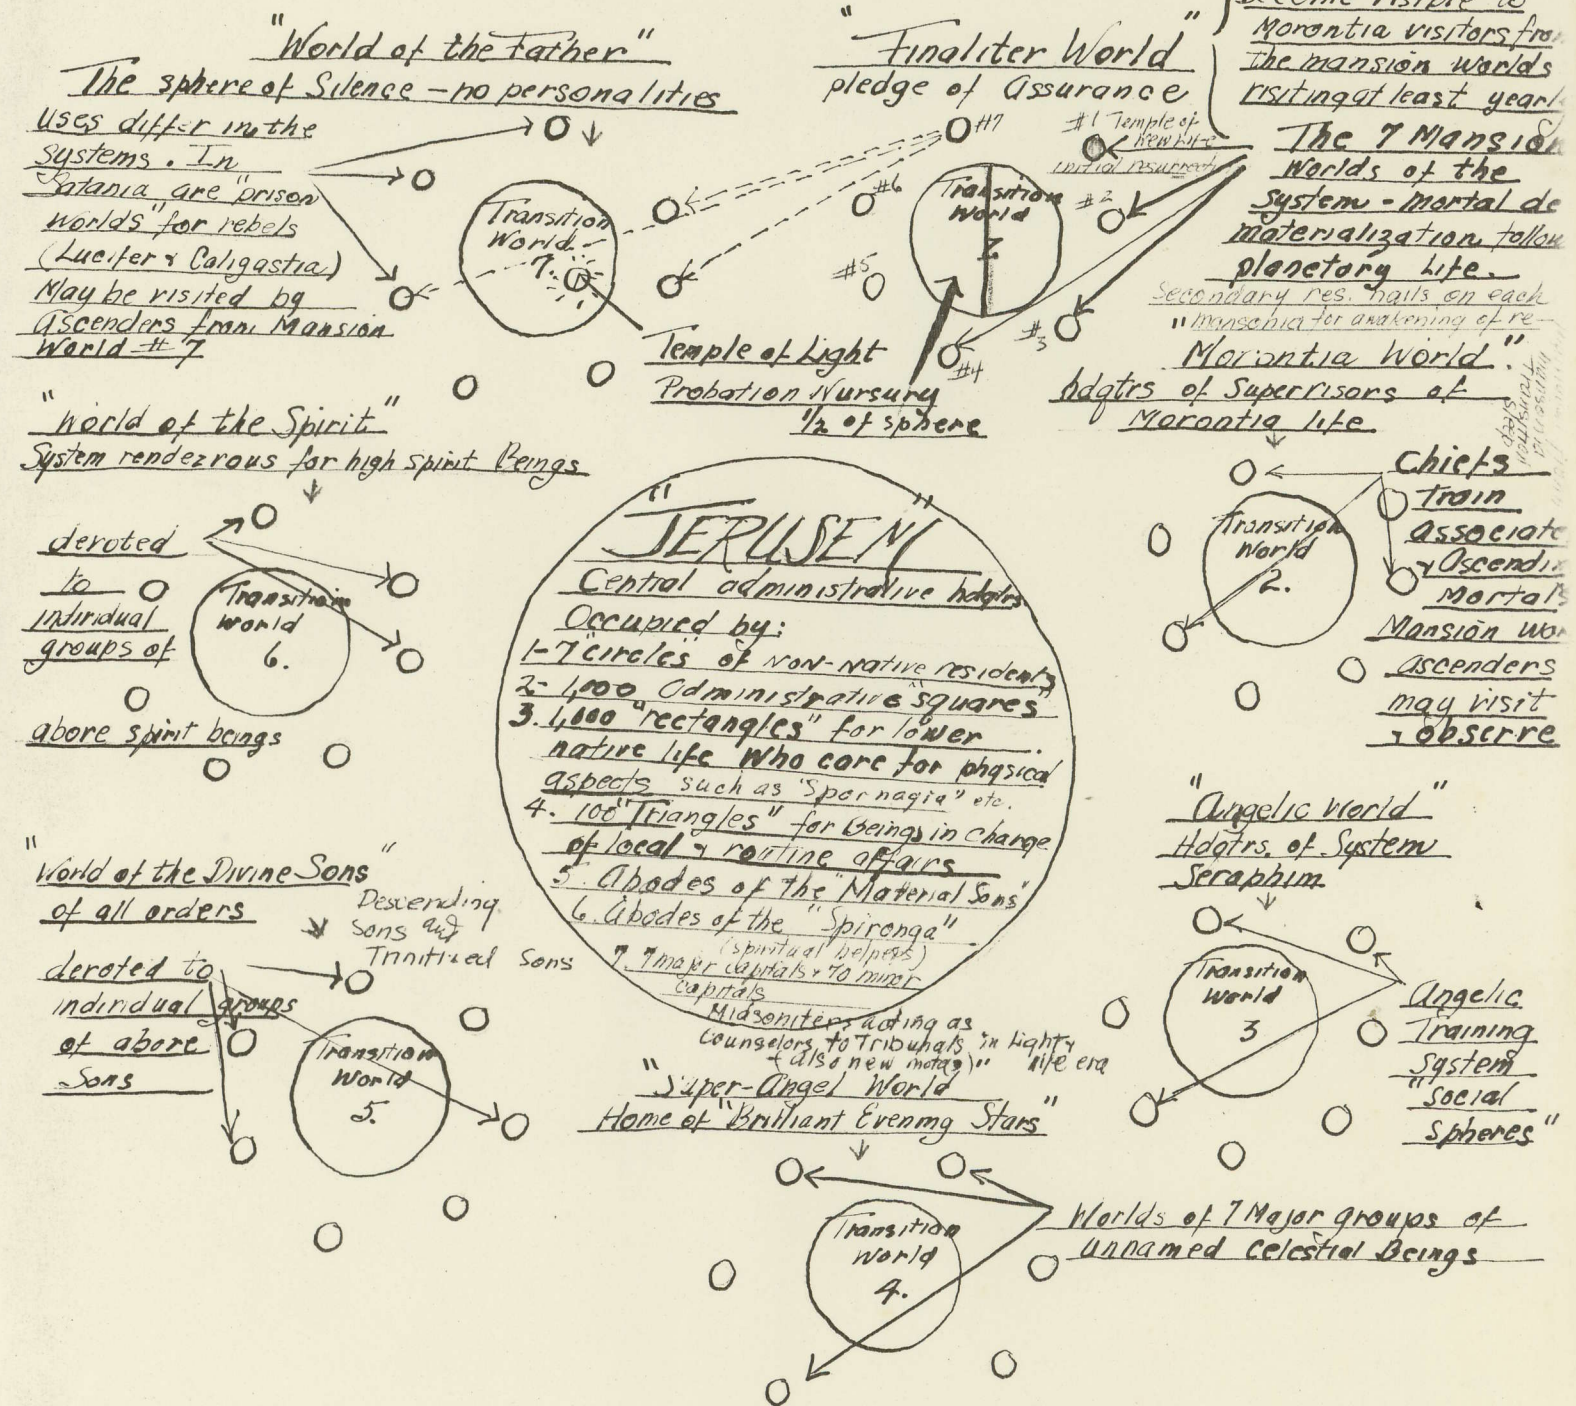 "World of the Father"
The sphere of Silence - no personalities
uses differ in the
systems. In
Satania are "prison
worlds" for rebels
(Lucifer & Caligastia)
May be visited by
ascenders from Mansion
World #7
Transition
World
7.
Temple of Light
Probation Nursury
1/2 of sphere
"Finaliter World"
pledge of assurance
#7
#6
#5
#4
#3
#2
#1 Temple of
New Life
initial resurrect
Transition
World
1
Morontia visitors from
the mansion worlds
visiting at least yearl
The 7 Mansion
Worlds of the
System - mortal de
materialization follow
planetory life.
Secondary res. halls on each
"mansonia for awakening of re-
Morontia World".
hdqtrs of Supervisors of
Morontia life
Transition
World
2.
Chiefs
Train
associate
& Ascendin
Mortals
Mansion wor
ascenders
may visit
& observe
"World of the Spirit"
System rendezvous for high spirit Beings
devoted
to
individual
groups of
above spirit beings
Transition
World
6.
"JERUSEM"
Central administrative hdqtrs
Occupied by:
1-7 "circles" of non-native residents
2- 1,000 administrative "squares"
3. 1,000 "rectangles" for lower
native life who care for physical
aspects such as "Spornagia" etc.
4. 100 "Triangles" for Beings in charge
of local & routine affairs
5. Abodes of the "Material Sons"
6. Abodes of the "Spironga"
(spiritual helpers)
7. 7 major capitals & 70 minor
capitals
Midsoniters acting as
counselors to Tribunals in Light &
(also new motas)" life era
"Angelic World"
Hdqtrs. of System
Seraphim
Transition
World
3
Angelic
Training
System
"Social
Spheres"
"World of the Divine Sons"
of all orders
Descending
Sons and
Trinitized Sons
devoted to
individual groups
of above
Sons
Transition
World
5.
"Super-Angel World"
Home of "Brilliant Evening Stars"
Transition
World
4.
Worlds of 7 Major groups of
unnamed Celestial Beings